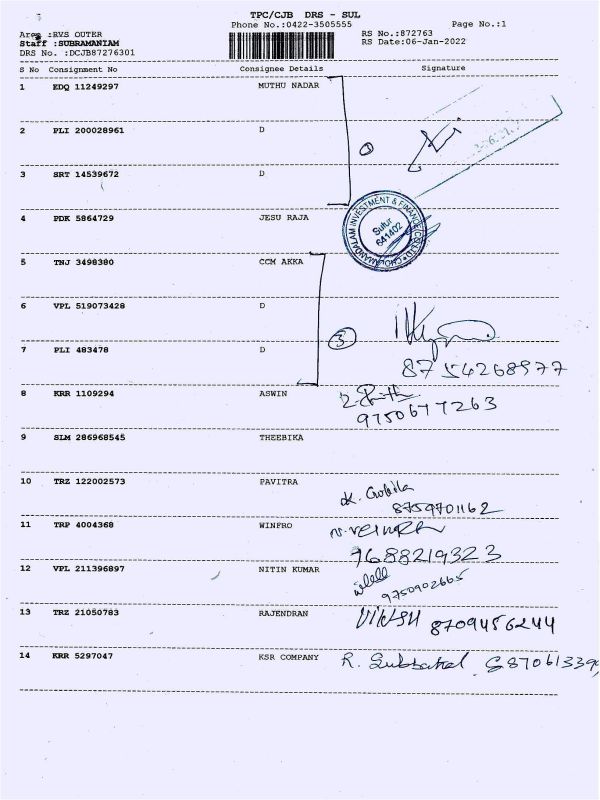 TPC/CJB DRS - SUL
Phone No.:0422-3505555 Page No.:1
Area :RVS OUTER RS No.:872763
Staff :SUBRAMANIAM RS Date:06-Jan-2022
DRS No. :DCJB87276301
S No Consignment No Consignee Details Signature
1 EDQ 11249297 MUTHU NADAR
2 PLI 200028961 D
1
3 SRT 14539672 D
CHOLAMANDALAM INVESTMENT & FINANCE CO LTD
Sulur
641402
4 PDK 5864729 JESU RAJA
5 TNJ 3498380 CCM AKKA
6 VPL 519073428 D
3
7 PLI 483478 D
8754268977
8 KRR 1109294 ASWIN
9750677263
9 SLM 286968545 THEEBIKA
10 TRZ 122002573 PAVITRA
8759701162
11 TRP 4004368 WINFRO
9688219323
12 VPL 211396897 NITIN KUMAR
9750902665
13 TRZ 21050783 RAJENDRAN
8709456244
14 KRR 5297047 KSR COMPANY R.